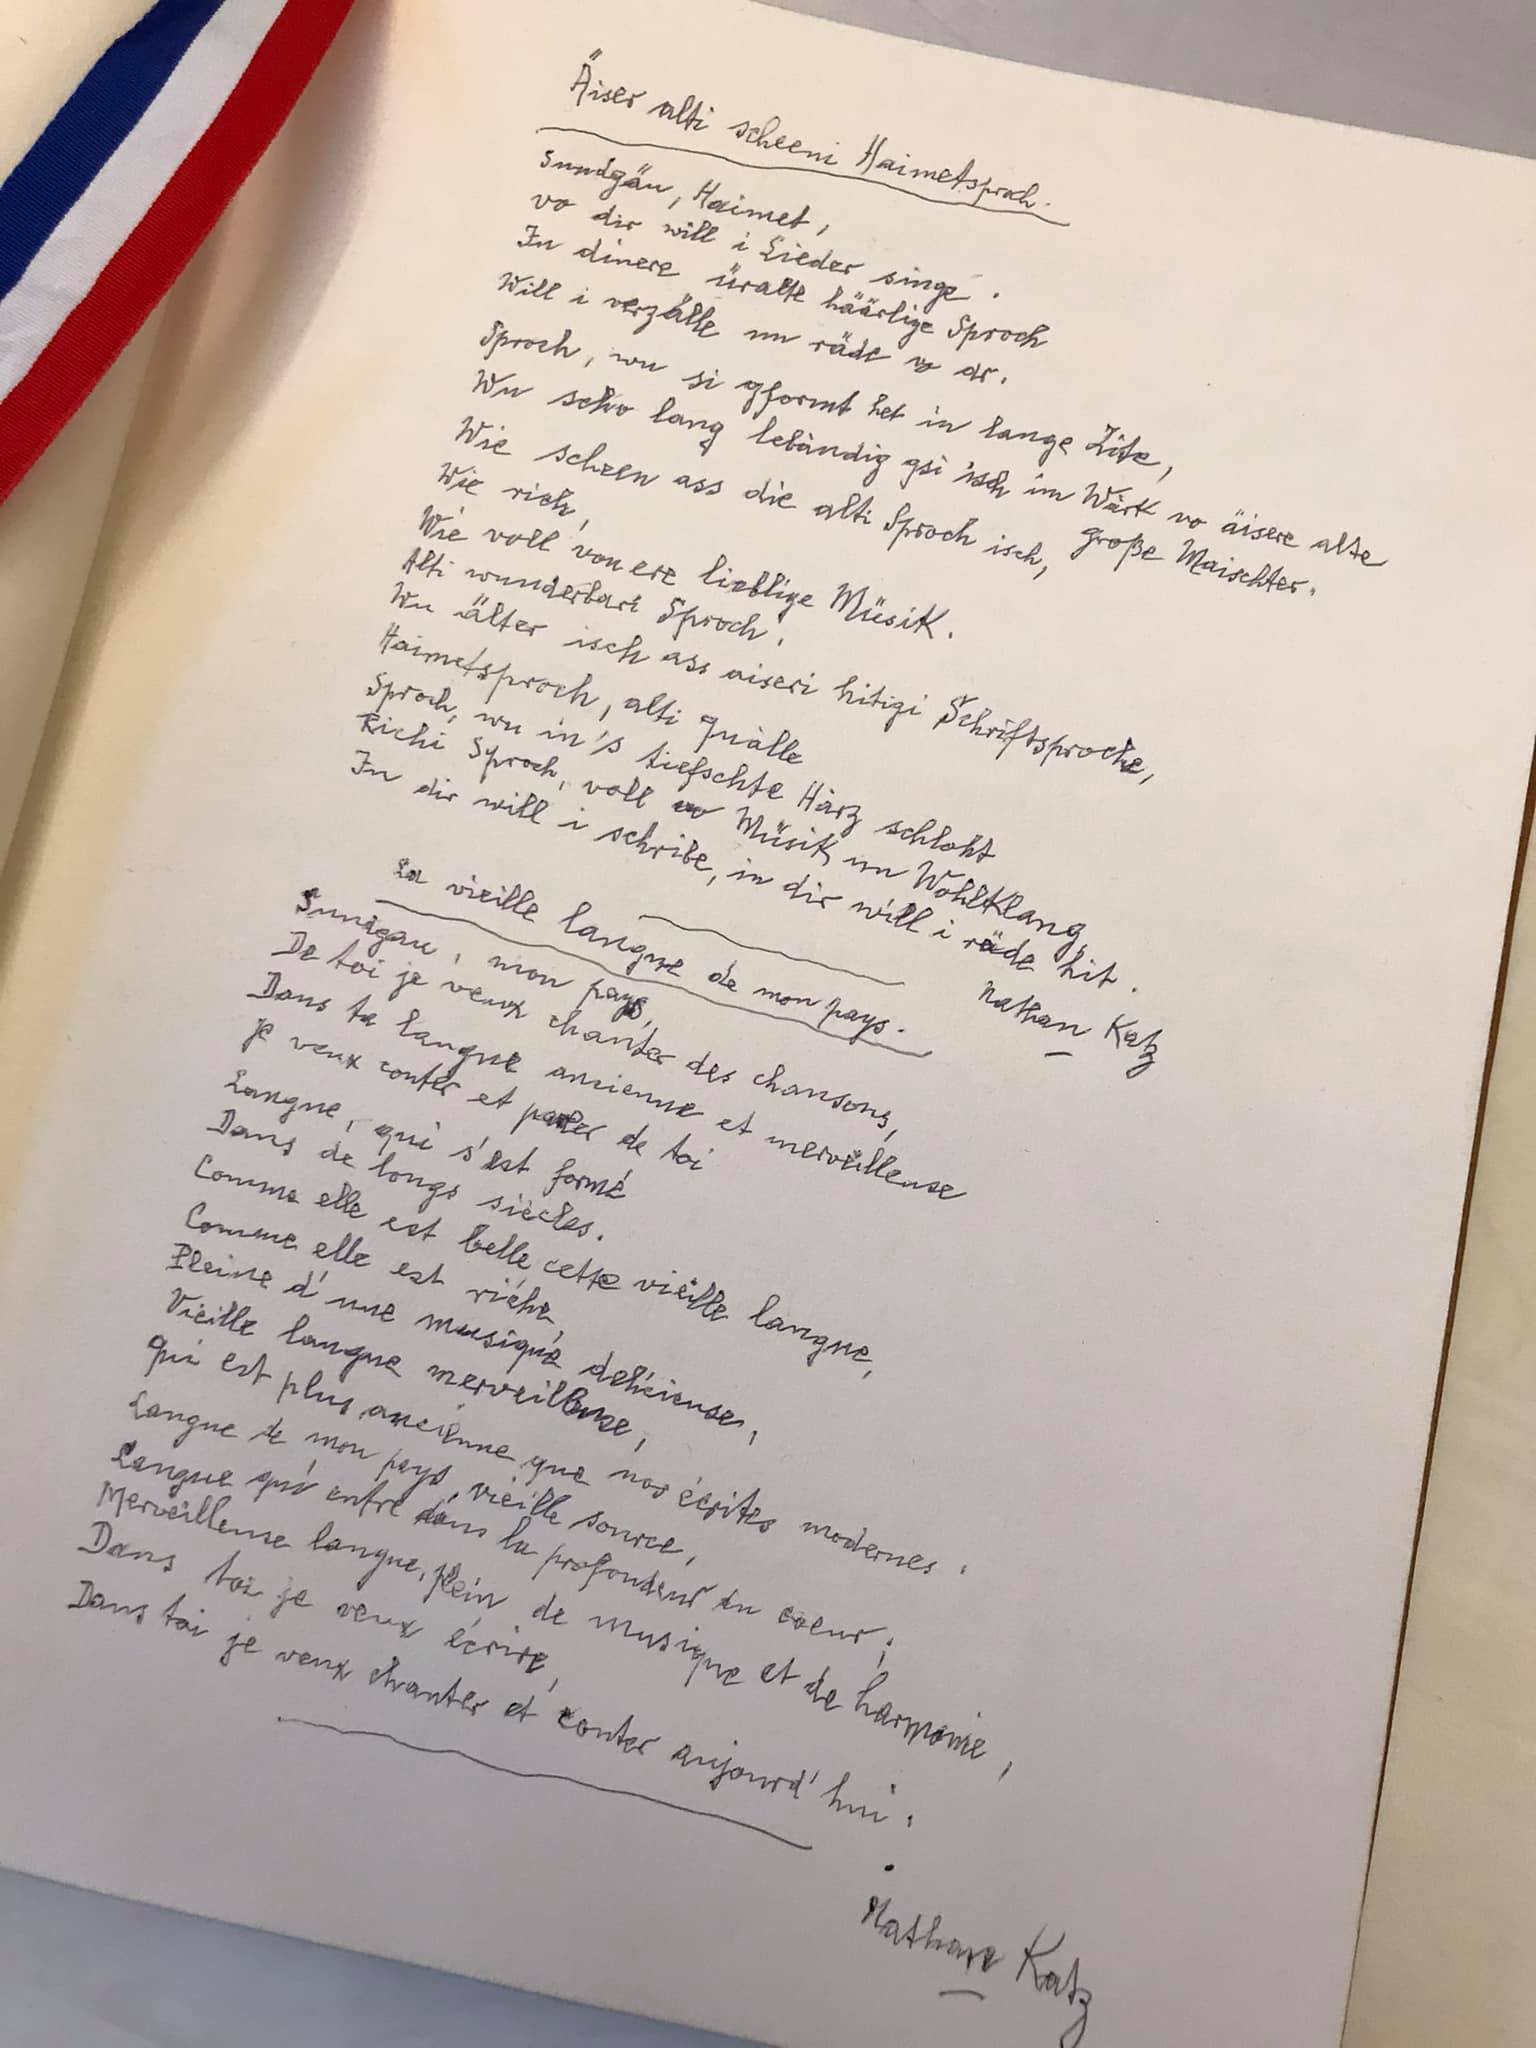 Äiser alti scheeni Haimetsproch.
Sundgäu, Haimet,
vo dir will i Lieder singe.
In dinere üralte häärlige Sproch
Will i verzälle un räde vo dr.
Sproch, wu si gformt het in lange Zite,
Wu scho lang lebändig gsi isch im Wärk vo äisere alte
große Maischter.
Wie scheen ass die alti Sproch isch,
Wie rich,
Wie voll vonere lieblige Müsik.
Alti wunderbari Sproch,
Wu älter isch ass aiseri hitigi Schriftsproche,
Haimetsproch, alti Quälle
Sproch, wu in's tiefschte Härz schloht
Richi Sproch, voll vo Müsik un Wohlklang,
In dir will i schribe, in dir will i räde hit.
Nathan Katz
La vieille langue de mon pays.
Sundgau, mon pays,
De toi je veux chanter des chansons,
Dans ta langue ancienne et merveilleuse
Je veux conter et parler de toi
Langue, qui s'est formé
Dans de longs siècles.
Comme elle est belle cette vieille langue,
Comme elle est riche,
Pleine d'une musique délicieuse,
Vieille langue merveilleuse,
Qui est plus ancienne que nos écrites modernes.
Langue de mon pays, vieille source,
Langue qui entre dans la profondeur du coeur;
Merveilleuse langue, plein de musique et de harmonie,
Dans toi je veux écrire,
Dans toi je veux chanter et conter aujourd'hui.
Nathan Katz